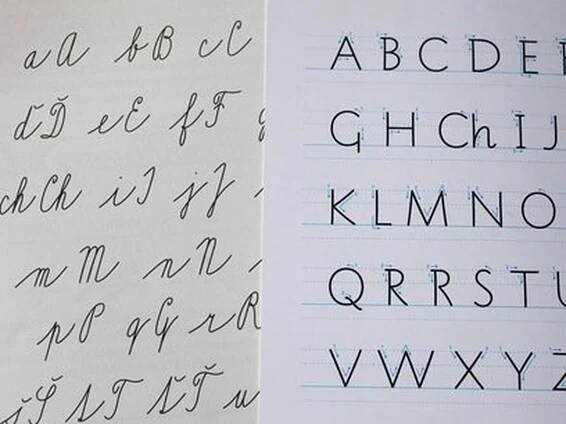 aA bB cC
ďĎ eE fF
chCh iI jJ
mM nN
pP qQ rR
šŠ tT ťŤ u
A B C D E
G H Ch I J
K L M N O
Q R R S T U
V W X Y Z